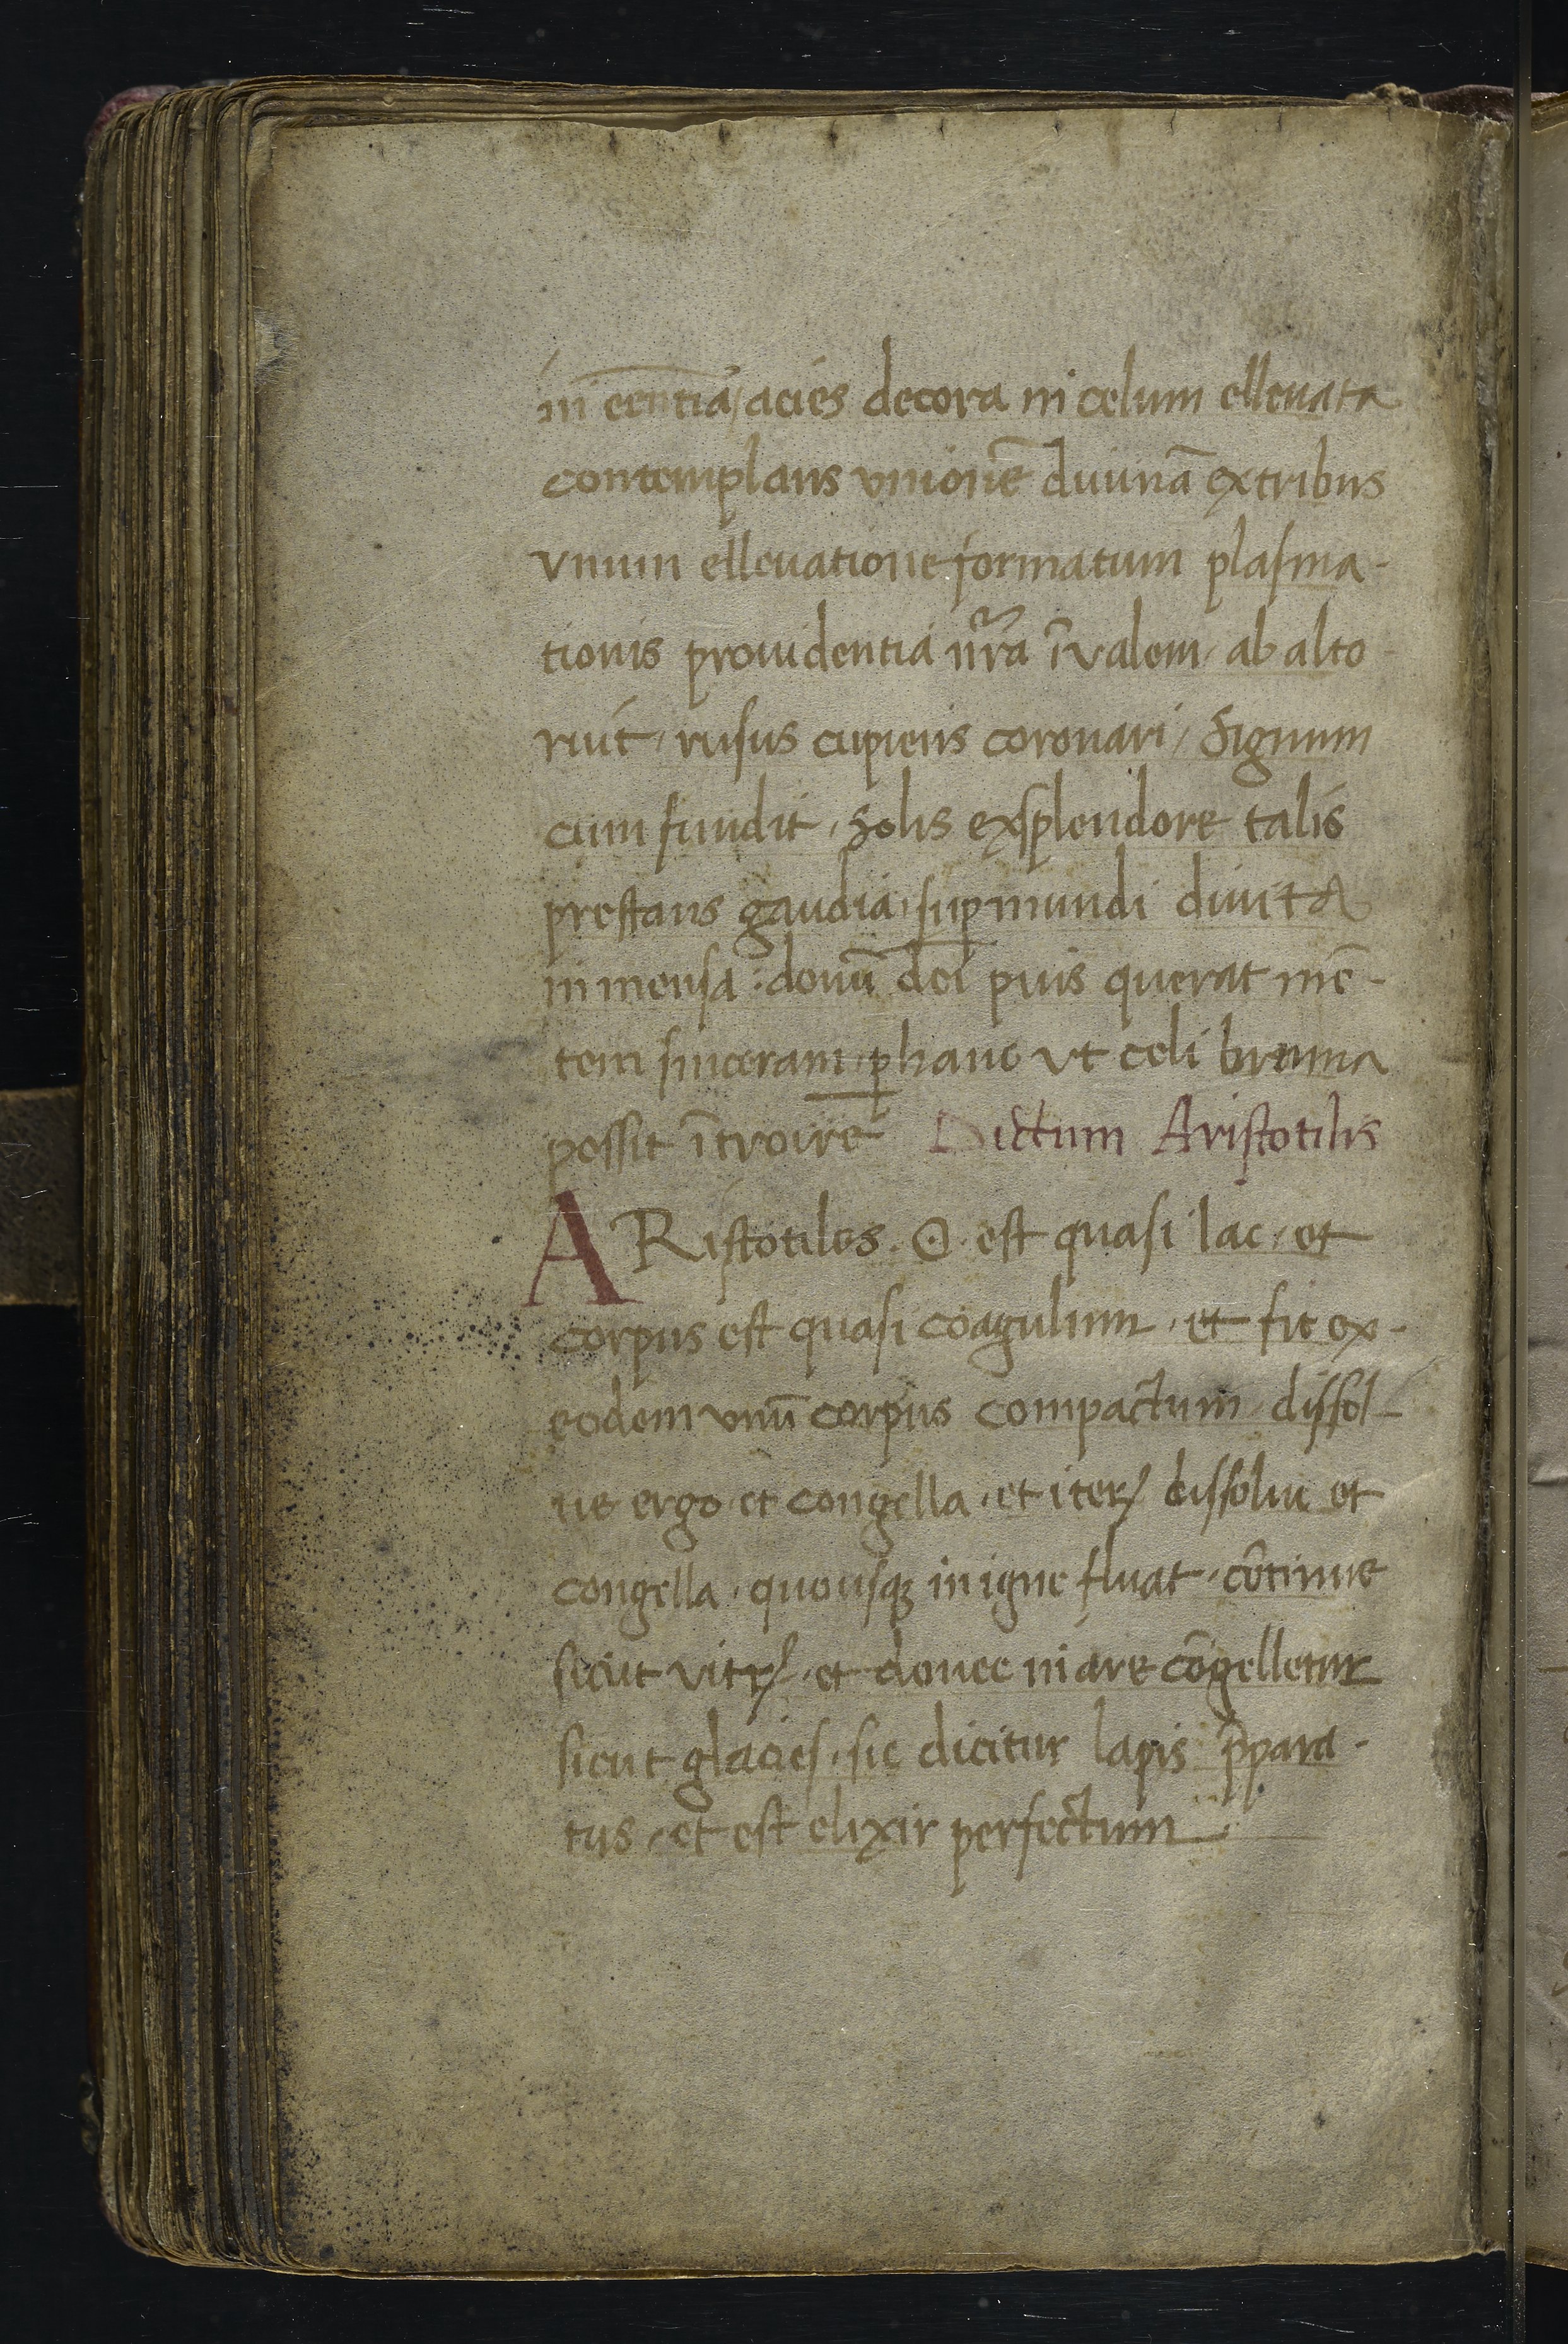 in ēēntiā, acies decora in celum elleuata
contemplans vnionē diuinā ex tribus
vnum elleuatione formatum plasma-
tionis prouidentia nr̄a ī valem. ab alto
ruit. risus cupiens coronari. Signum
cum fundit. Solis exsplendore talis
prestans gaudia, suꝑ mundi diuita
in mensa. donū dei puis querat mē-
tem sinceram. ꝑ hanc vt celi brauia
possit ītroire Dictum Aristotilis
ARistotiles. ☉. est quasi lac. et
corpus est quasi coagulum. et fit ex-
eodem vnū corpus compactum. dissol-
ue ergo et congella. et iterꝝ dissolue et
congella. quousqꝫ in igne fluat. cōtinue
sicut vitꝝ. et donec in are cōgelletur
sicut glacies. sic dicitur lapis p̄para-
tus. et est elixir perfectum